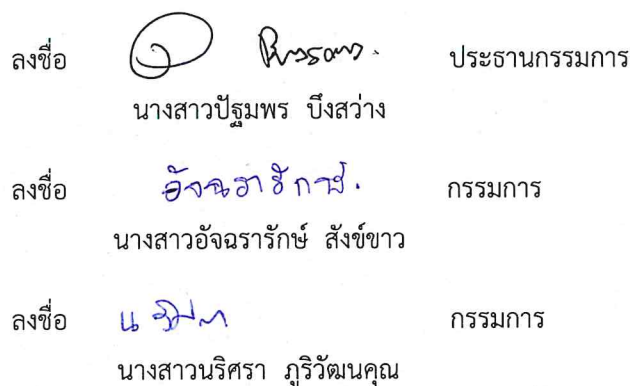 ลงชื่อ ประธานกรรมการ
นางสาวปัฐมพร บึงสว่าง
ลงชื่อ อัจฉรารักษ์. กรรมการ
นางสาวอัจฉรารักษ์ สังข์ขาว
ลงชื่อ กรรมการ
นางสาวนริศรา ภูริวัฒนคุณ